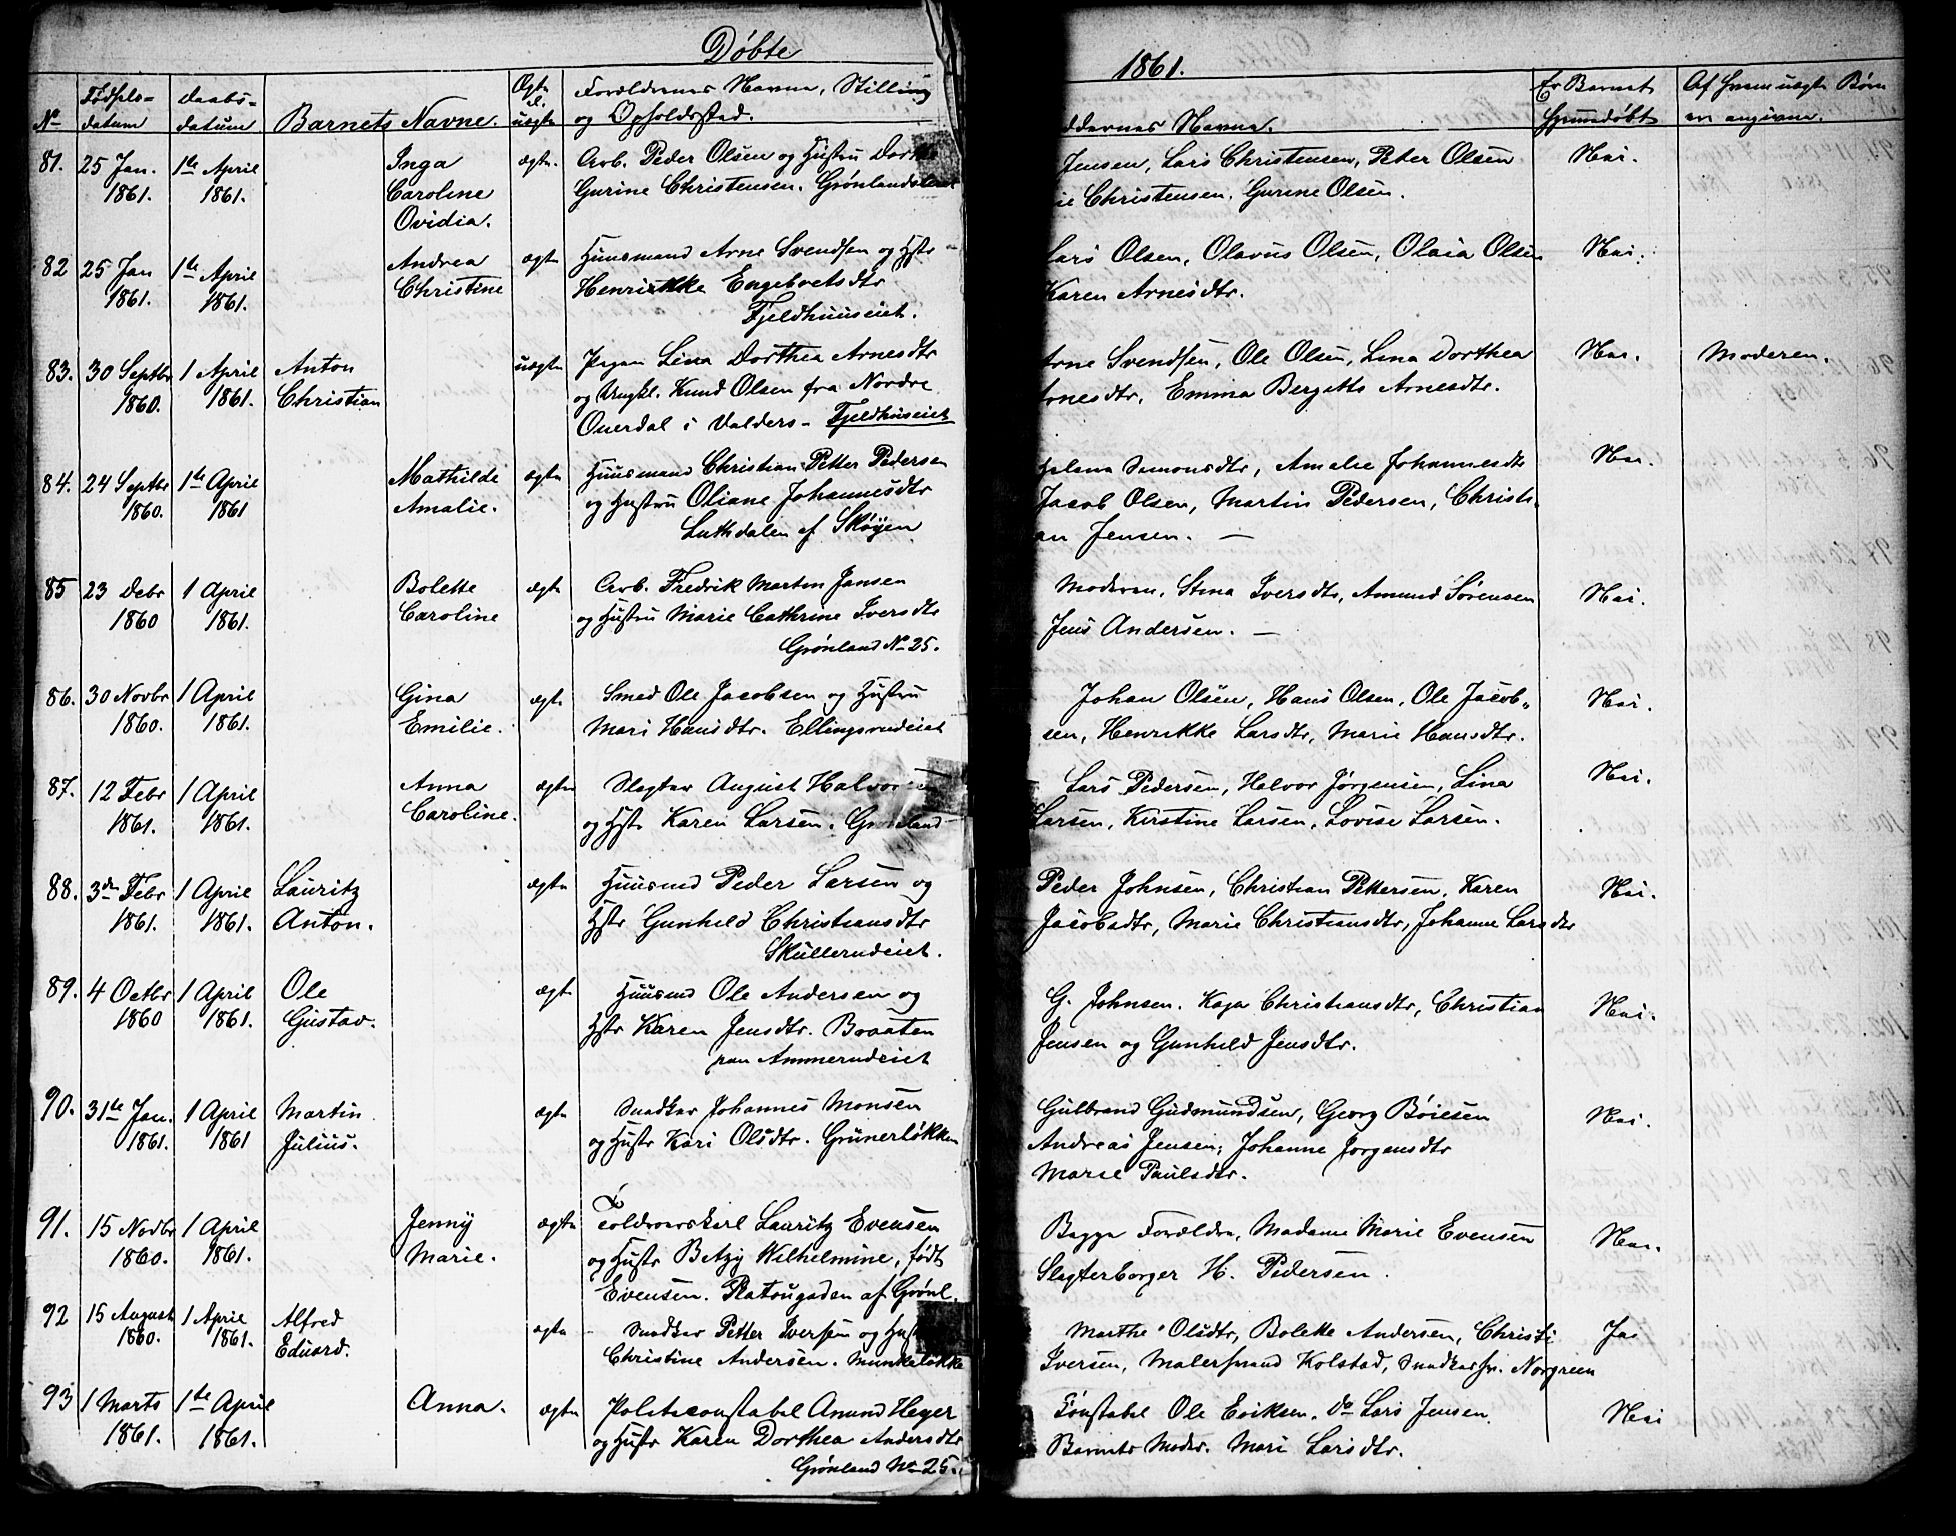 Døbte
1861.
No
Fødsels-
datum
Daabs-
datum
Barnets Navne.
Ægte
el.
uægte
Forældrenes Navne, Stilling
og Opholdssted.
ddernes Navne.
Er Barnet
hjemmedøbt
Af hvem uægte Børn
ere angivne.
81. 25 Jan. 1ste April Inga ægte. Arb. Peder Olsen og Hustru Dorthe
1861. 1861. Caroline Gurine Christensen. Grønlandsleret
Ovidia.
Jensen, Lars Christensen, Peter Olsen Nei.
ie Christensen, Gurine Olsen.
82 25 Jan 1ste April Andrea ægte Huusmand Arne Svendsen og Hstr
1861. 1861. Christine Henrikke Engebretsdtr
Fjeldhuuseiet.
Lars Olsen, Olavus Olsen, Olaia Olsen Nei.
Karen Arnesdtr.
83. 30 Septbr 1 April Anton uægte Pigen Lina Dorthea Arnesdtr
1860. 1861. Christian og Ungkl. Knud Olsen fra Nordre
Ouerdal i Valders - Fjeldhuseiet
Arne Svendsen, Ole Olsen, Lina Dorthea Nei. Moderen.
Arnesdtr, Emma Bergitte Arnesdtr.
84. 24 Septbr 1ste April Mathilde ægte Huusmand Christian Petter Pedersen
1860. 1861 Amalie. og Hustru Oliane Johannesdtr
Luthdalen af Skøÿen
Helena Simonsdtr, Amalie Johannesdtr Nei.
Jacob Olsen, Martin Pedersen, Christi-
an Jensen. —
85 23 Debr 1 April Bolette ægte Arb. Fredrik Martin Jansen
1860 1861. Caroline og Hustru Marie Cathrine Iversdtr
Grønland No 25.
Moderen, Stina Iversdtr, Amund Sørensen Nei.
Jens Andersen. —
86. 30 Novbr 1 April Gina ægte Smed Ole Jacobsen og Hustru
1860. 1861. Emilie. Mari Hansdtr. Ellingsrudeiet
Johan Olsen, Hans Olsen, Ole Jacob- Nei.
sen, Henrikke Larsdtr, Marie Hansdtr.
87. 12 Febr 1 April Anna ægte Slagter August Halvorsen
1861. 1861. Caroline. og Hstr Karen Larsen. Grønland
Lars Pedersen, Halvor Jørgensen, Lina Nei.
Larsen, Kirstine Larsen, Lovise Larsen.
88. 3die Febr 1 April Lauritz ægte Huusmd Peder Larsen og
1861. 1861. Anton. Hstr Gunhild Christiansdtr
Skullerudeiet.
Peder Johnsen, Christian Pettersen, Karen Nei.
Jacobsdtr, Marie Christiansdtr, Johanne Larsdtr
89. 4 Octbr 1 April Ole ægte Huusmd Ole Andersen og
1860 1861. Gustav. Hstr Karen Jensdtr. Braaten
Ammerudeiet
G. Johnsen. Kaja Christiansdtr, Christian Nei.
Jensen og Gunhild Jensdtr.
90. 31te Jan. 1 April Martin ægte Snedker Johannes Monsen
1861. 1861 Julius. og Hustr Kari Olsdtr. Grünerløkken
Gulbrand Gudmundsen, Georg Bøiesen Nei.
Andreas Jensen, Johanne Jørgensdtr
Marie Paulsdtr.
91. 15 Novbr 1 April Jenny ægte Toldroerskarl Lauritz Evensen
1860. 1861. Marie. og Hustr Betzy Wilhelmine, født
Evensen. Platougaden af Grønl.
Begge Forældre, Madame Marie Evensen Nei.
Slagterborger H. Pedersen.
92 15 August 1 April Alfred ægte Snedker Petter Iversen og Hustr
1860. 1861. Eduard. Christine Andersen. Munkeløkke
Marthe Olsdtr, Bolette Andersen, Christi Ja
Iversen, Malersvend Kolstad, Snedkersv. Norgreen
93 1 Marts 1ste April Anna. ægte Politiconstabel Amund Heyer
1861. 1861. og Hustr Karen Dorthea Andersdtr
Grønland No 25.
Constabel Ole Eriksen. do Lars Jensen. Nei
Barnets Moder. Mari Larsdtr.